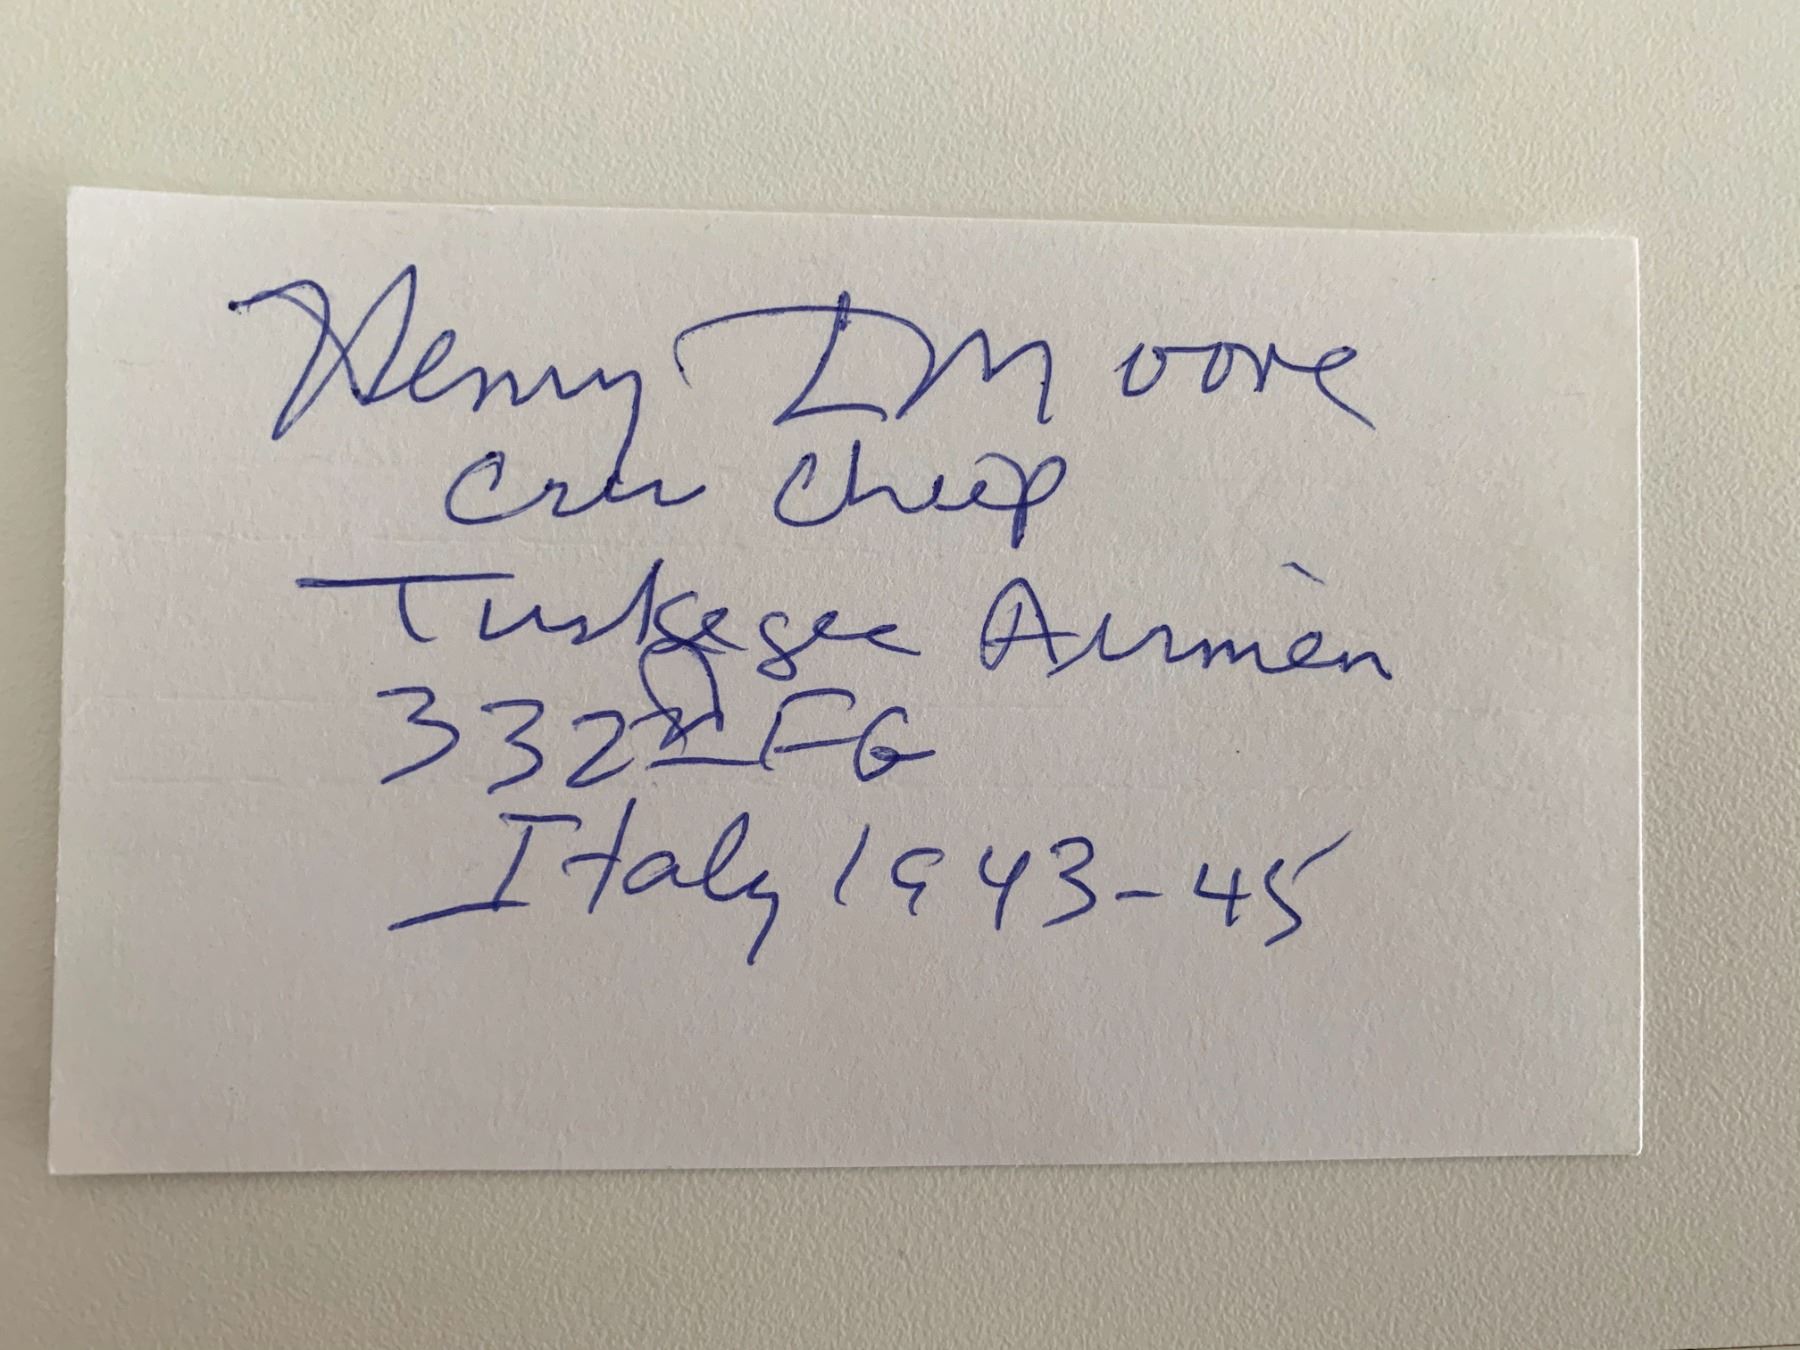 Henry I Moore
Crew Chief
Tuskegee Airmen
332nd FG
Italy 1943-45